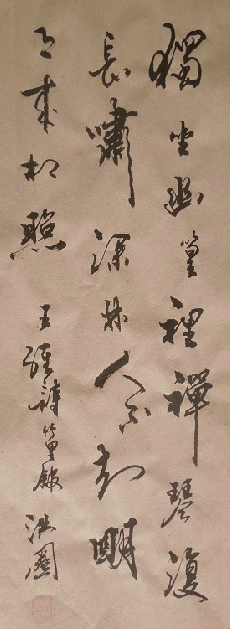 獨坐幽篁裡禪琴復
長嘯深林人不知明
月來相照 王維詩竹里館